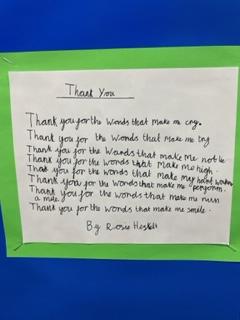 Thank You
Thank you for the words that make me cry.
Thank you for the words that make me try
Thank you for the words that make me not lie
Thank you for the words that make me high.
Thank you for the words that make my heart warm
Thank you for the words that make me perform.
Thank you for the words that make me run
a mile.
Thank you for the words that make me smile.
By Rosie